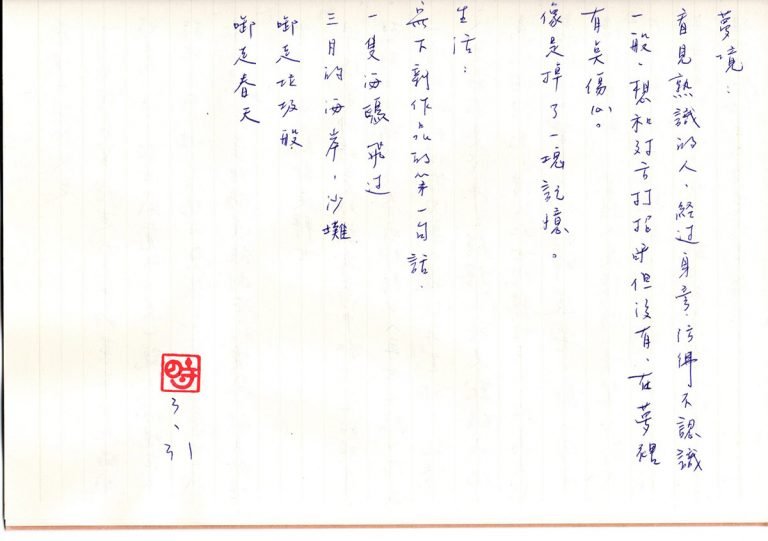 夢境：
看見熟識的人，經过身旁，彷彿不認識
一般，想和对方打招呼但没有，在夢裡
有臭傷心。
像是掉了一塊記憶。
生活：
寫下創作品的第一句話.
一隻海鷗飛过
三月的海岸，沙灘
啣走垃圾般
啣走春天
3、31